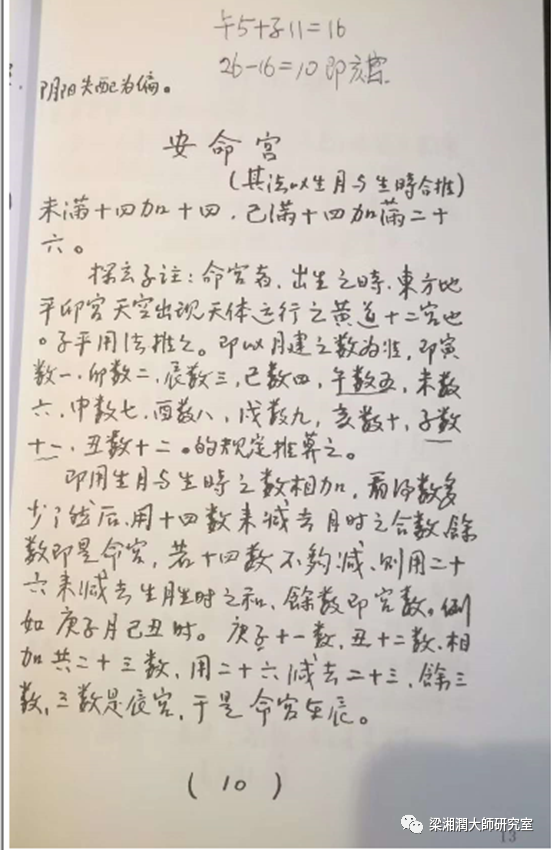 午5+子11=16
26-16=10即亥宫
阴阳失配为偏。
安命宫
(其法以生月与生時合推)
未满十四加十四，已满十四加滿二十
六。
探玄子註：命宫者，出生之時，東方地
平卯宫天空出现天体运行之黄道十二宫也
。子平用法推之。即以月建之数为准，即寅
数一，卯数二，辰数三，巳数四，午数五，未数
六，申数七，酉数八，戌数九，亥数十，子数
十一，丑数十二。的规定推算之。
即用生月与生時之数相加，看得数多
少，然后，用十四数来减去月时之合数，餘
数即是命宫，若十四数不夠减，则用二十
六来减去生月生时之和，餘数即宫数。例
如庚子月己丑时。庚子十一数，丑十二数，相
加共二十三数，用二十六减去二十三，餘三
数，三数是辰宫，于是命宫在辰。
(10)
梁湘潤大師研究室
13